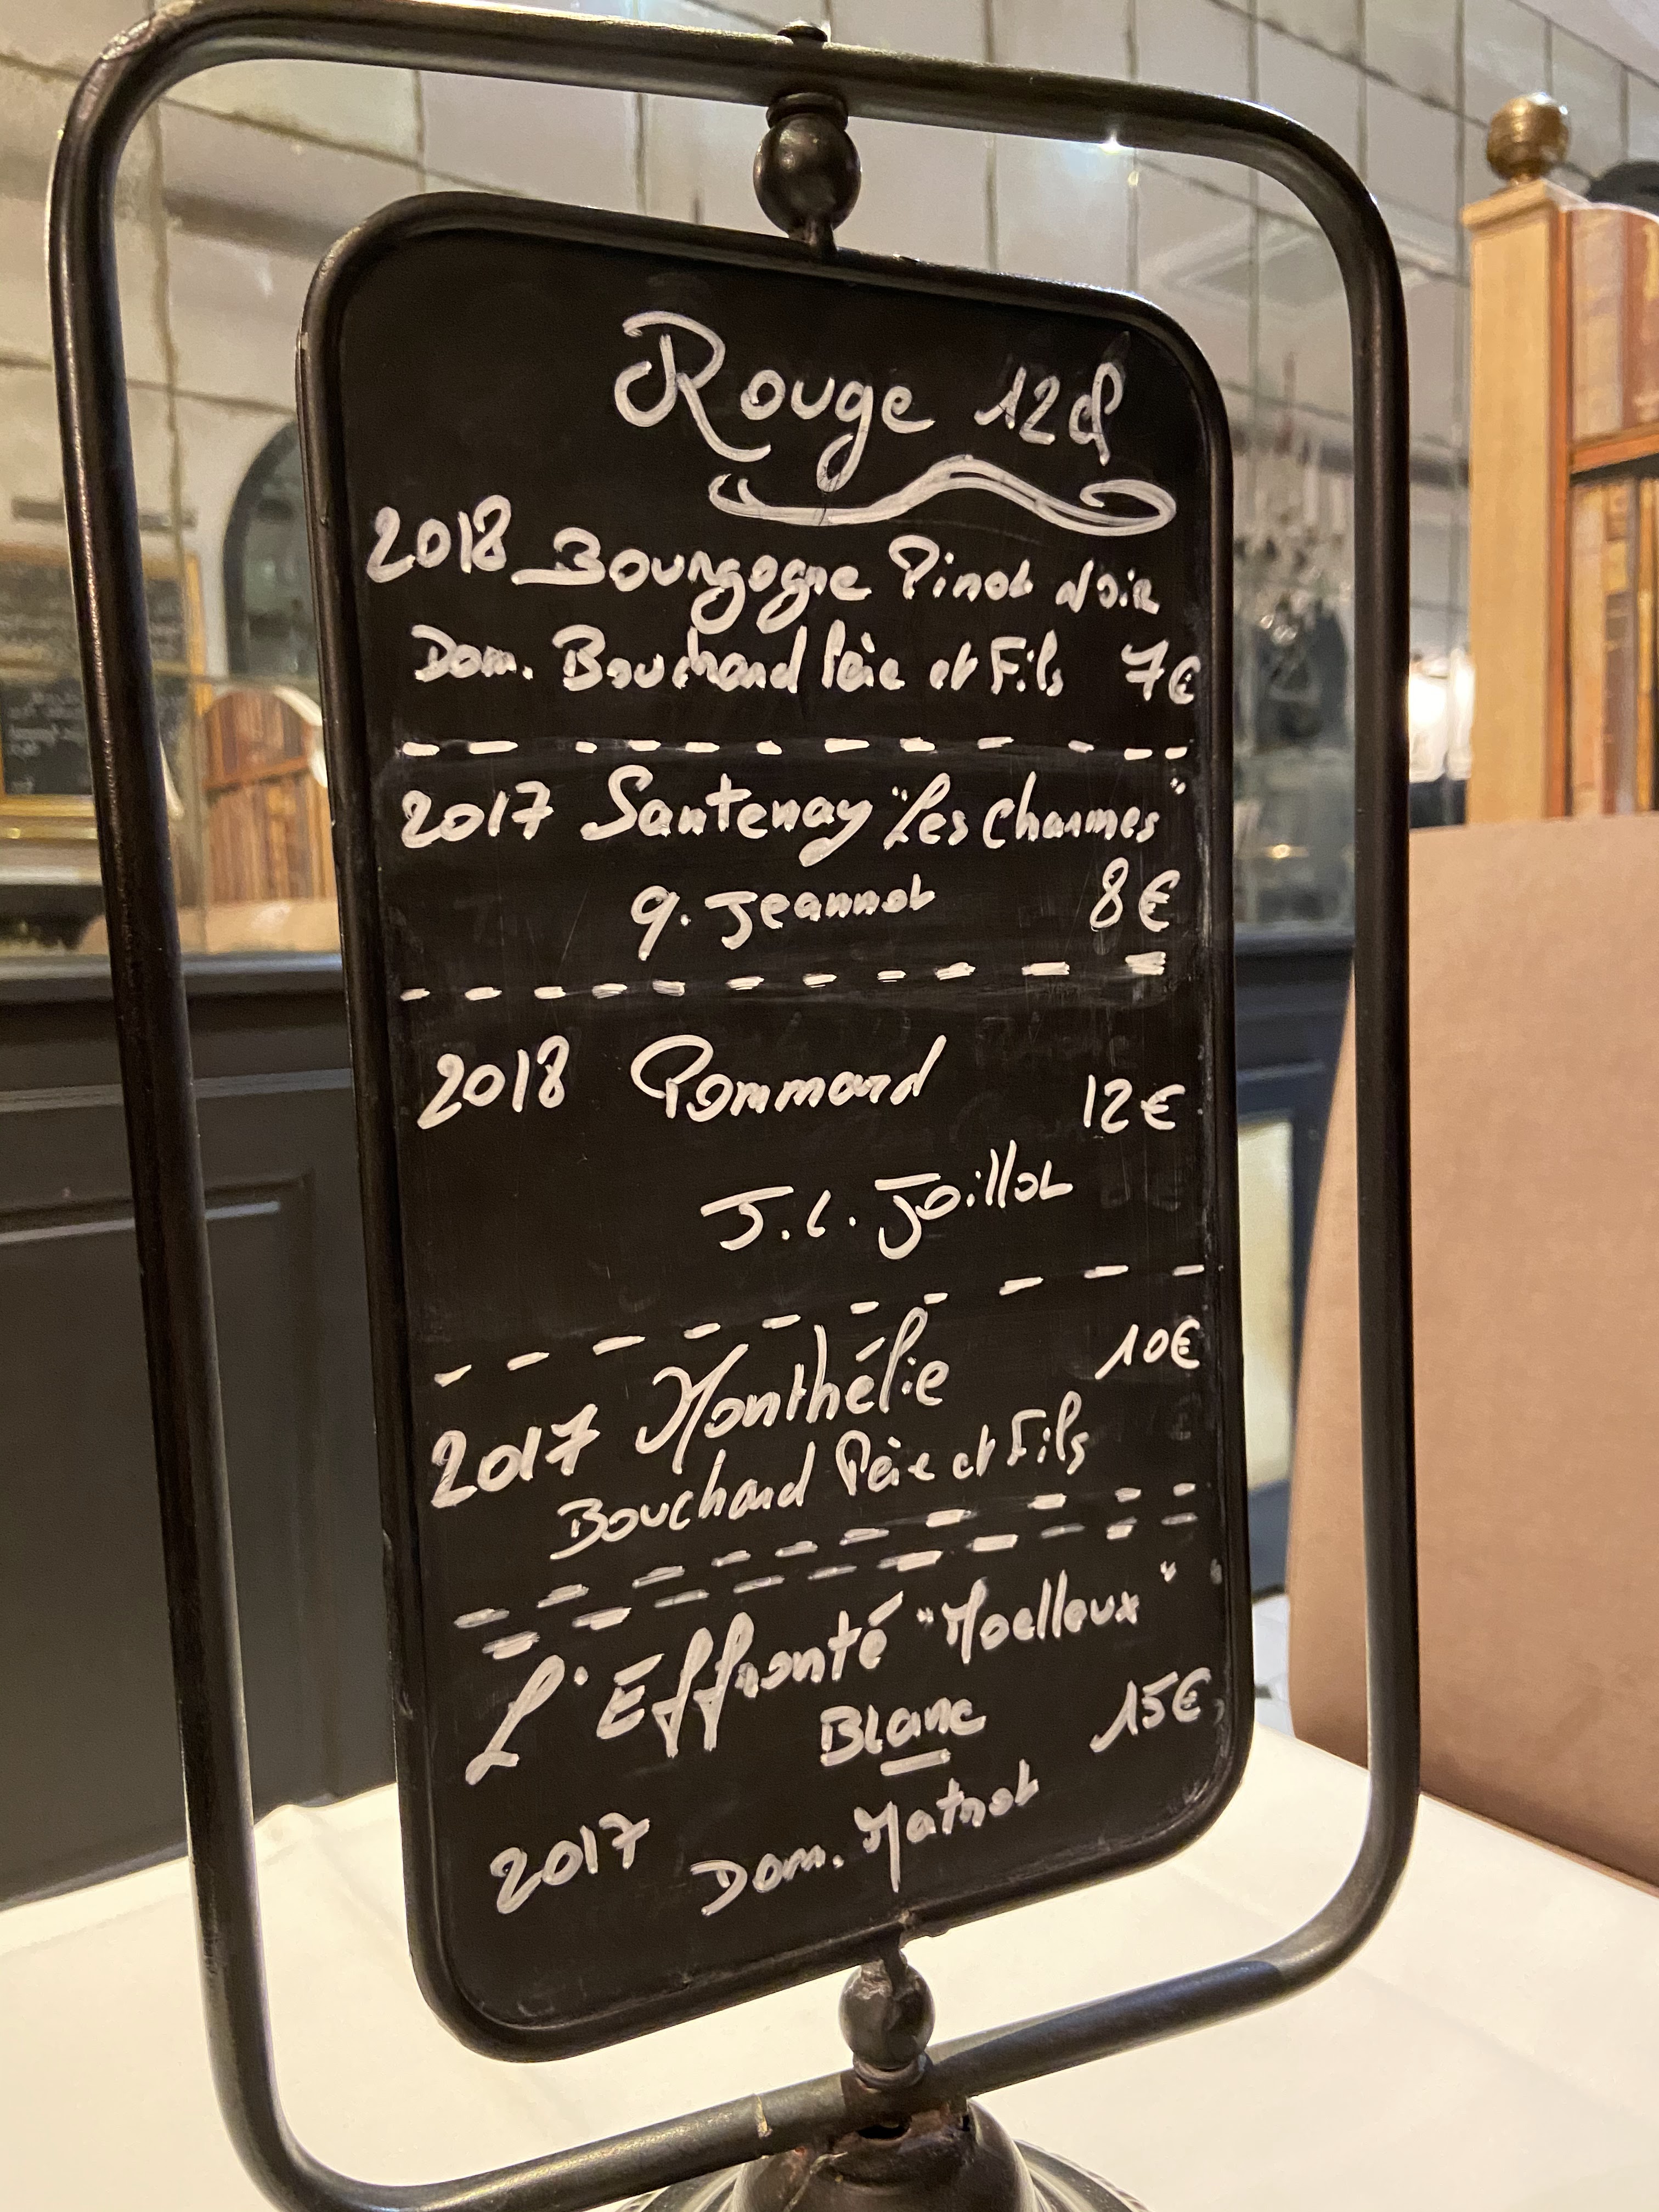 Rouge 12cl
2018 Bourgogne Pinot Noir
Dom. Bouchard Père et Fils 7€
2017 Santenay "Les Charmes"
G. Jeannot 8€
2018 Pommard 12€
J.L. Joillot
10€
2017 Monthélie
Bouchard Père et Fils
L'Effronté "Moelleux"
Blanc 15€
2017 Dom. Matrot